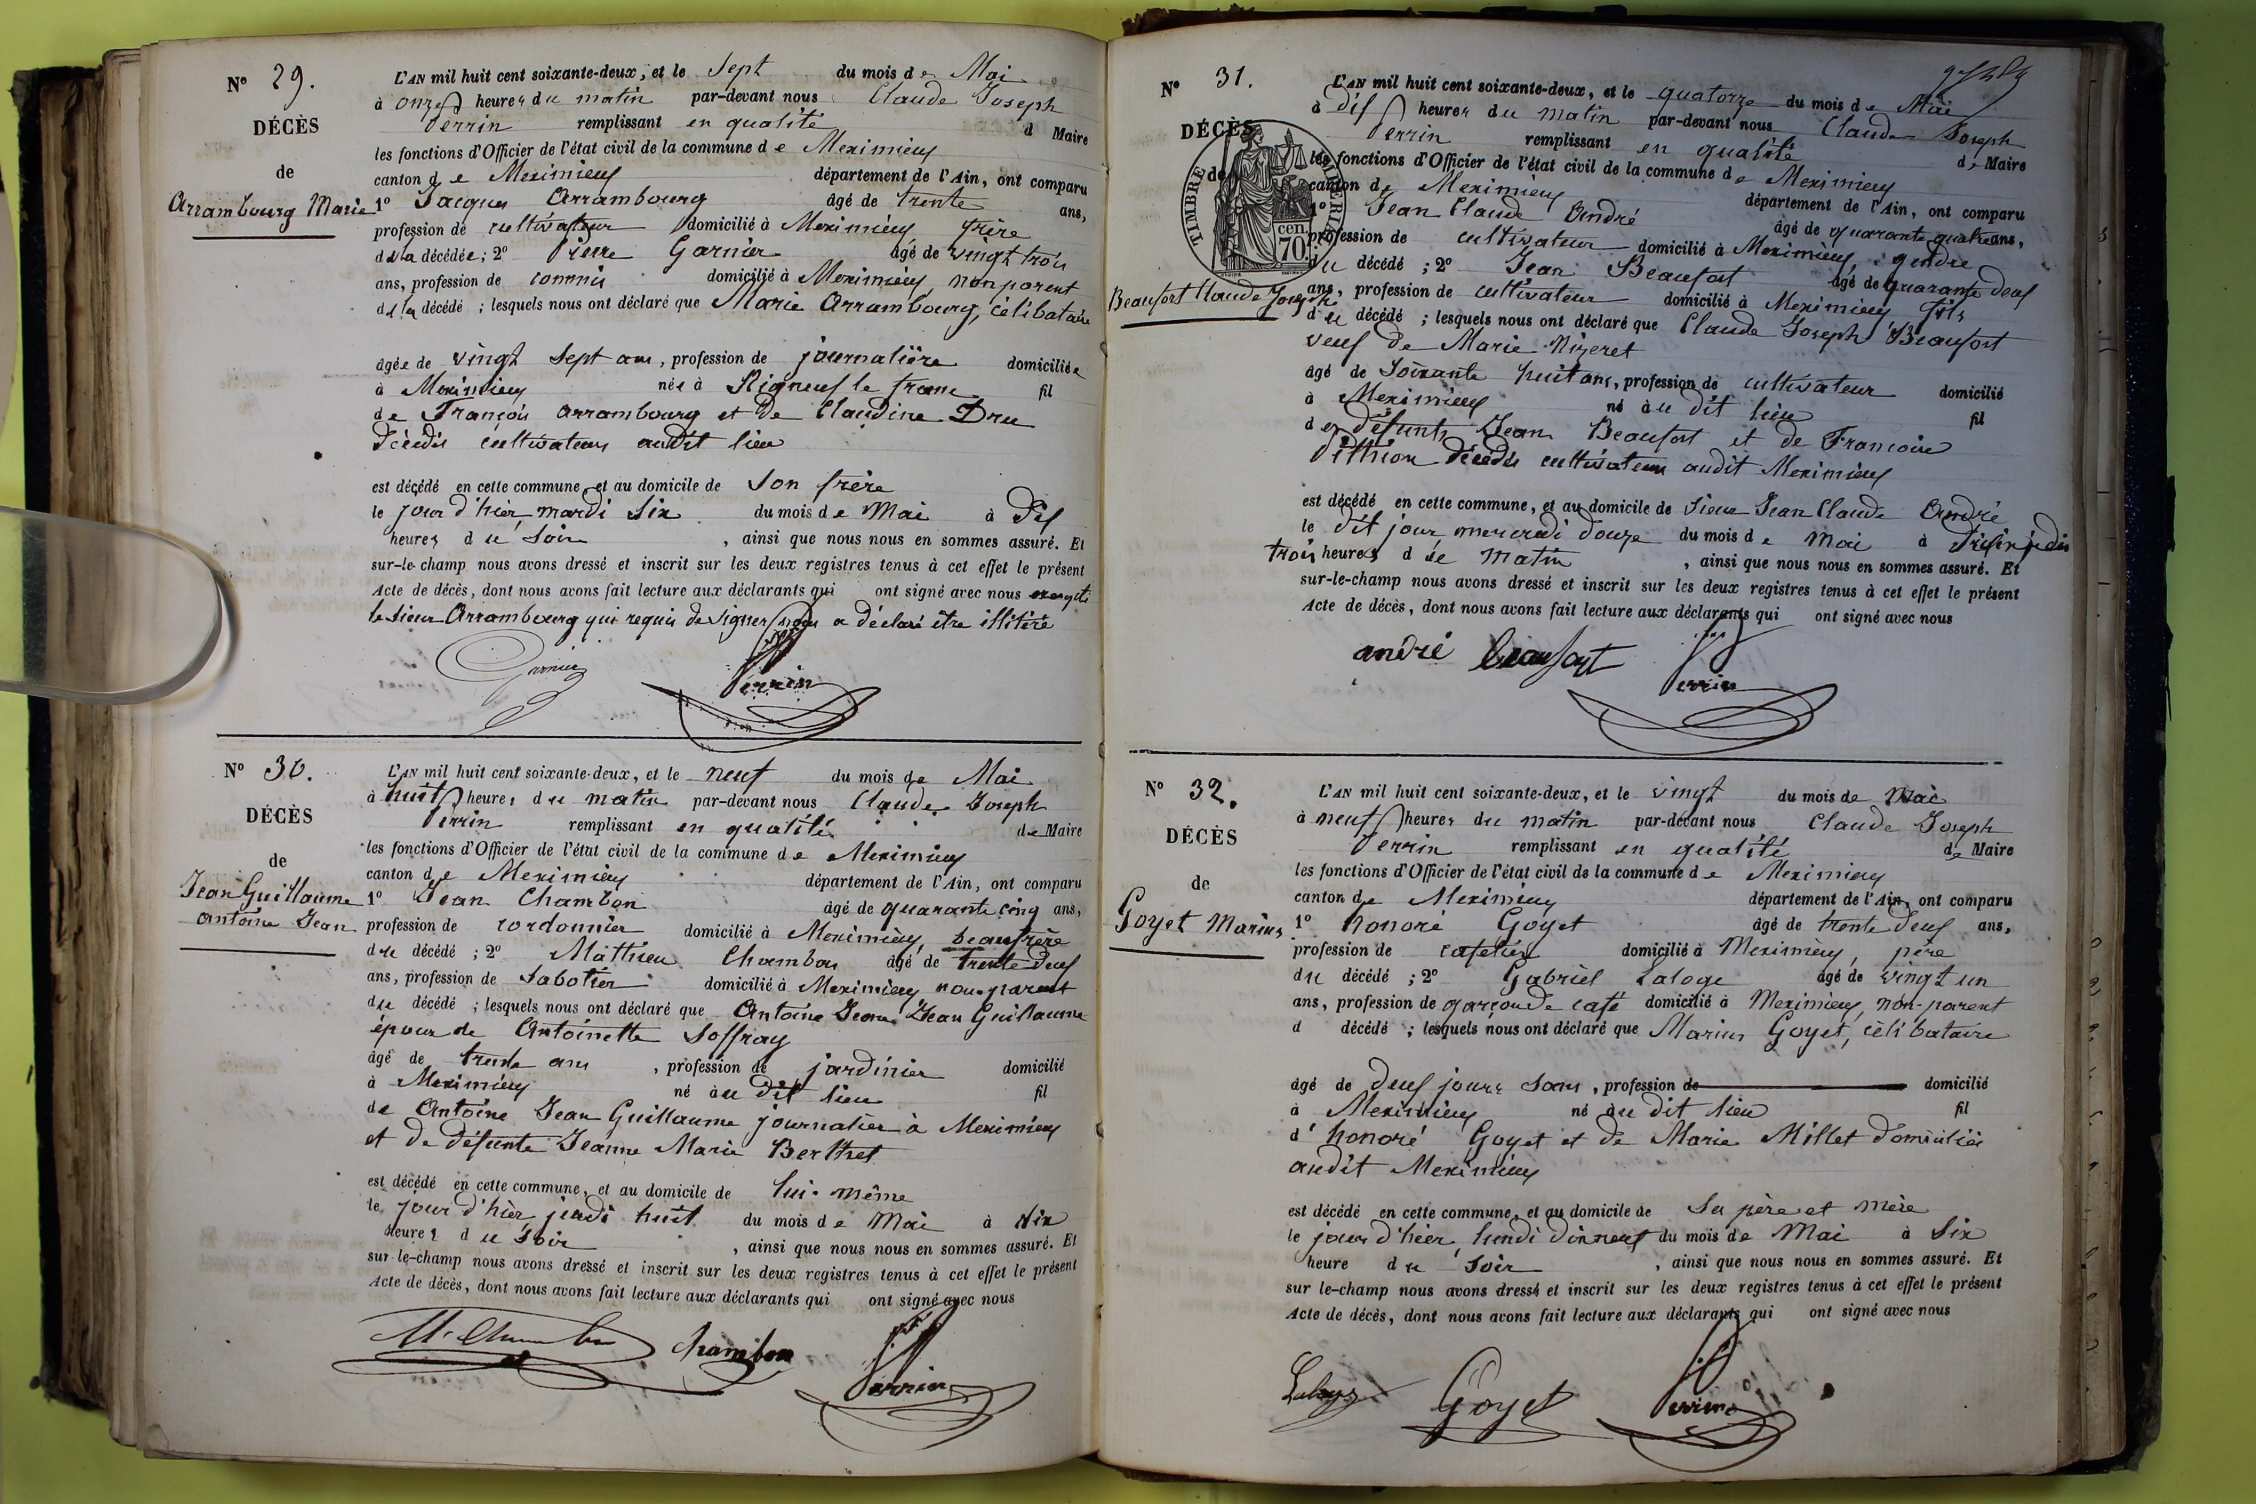 N° 29.
DÉCÈS
de
Arrambourg Marie
L'AN mil huit cent soixante-deux, et le sept du mois de Mai
à onze heures du matin par-devant nous Claude Joseph
Perrin remplissant en qualité d Maire
les fonctions d'Officier de l'état civil de la commune de Meximieux
canton de Meximieux département de l'Ain, ont comparu
1° Jacques Arrambourg âgé de trente ans,
profession de cultivateur domicilié à Meximieux frère
de la décédée; 2° Pierre Garnier âgé de vingt trois
ans, profession de commis domicilié à Meximieux, non parent
de la décédé ; lesquels nous ont déclaré que Marie Arrambourg, célibataire
âgée de vingt sept ans, profession de journalière domiciliée
à Meximieux née à Rigneux le franc fil
de François Arrambourg et de Claudine Dru
décédés cultivateurs audit lieu
est décédé en cette commune, et au domicile de son frère
le jour d'hier mardi six du mois de Mai à dix
heures du soir, ainsi que nous nous en sommes assuré. Et
sur-le-champ nous avons dressé et inscrit sur les deux registres tenus à cet effet le présent
Acte de décès, dont nous avons fait lecture aux déclarants qui ont signé avec nous excepté
le sieur Arrambourg qui requis de signer nous a déclaré être illitéré
Garnier Perrin
N° 30.
DÉCÈS
de
Jean Guillaume
Antoine Jean
L'AN mil huit cent soixante-deux, et le neuf du mois de Mai
à huit heures du matin par-devant nous Claude Joseph
Perrin remplissant en qualité de Maire
les fonctions d'Officier de l'état civil de la commune de Meximieux
canton de Meximieux département de l'Ain, ont comparu
1° Jean Chambon âgé de quarante cinq ans,
profession de cordonnier domicilié à Meximieux, beaufrère
du décédé ; 2° Mathieu Chambon âgé de trente deux
ans, profession de Sabotier domicilié à Meximieux non-parent
du décédé ; lesquels nous ont déclaré que Antoine Jean Jean Guillaume
époux de Antoinette Soffray
âgé de trente ans, profession de jardinier domicilié
à Meximieux né au dit lieu fil
de Antoine Jean Guillaume journalier à Meximieux
et de défunte Jeanne Marie Berthet
est décédé en cette commune, et au domicile de lui-même
le jour d'hier jeudi huit du mois de Mai à dix
heures du soir, ainsi que nous nous en sommes assuré. Et
sur-le-champ nous avons dressé et inscrit sur les deux registres tenus à cet effet le présent
Acte de décès, dont nous avons fait lecture aux déclarants qui ont signé avec nous
M. Chambon Chambon Perrin
N° 31.
DÉCÈS
de
Beaufort Claude Joseph
TIMBRE IMPÉRIAL
70 cen.
L'AN mil huit cent soixante-deux, et le quatorze du mois de Mai
à dix heures du matin par-devant nous Claude Joseph
Perrin remplissant en qualité de Maire
les fonctions d'Officier de l'état civil de la commune de Meximieux
canton de Meximieux département de l'Ain, ont comparu
1° Jean Claude André âgé de quarante quatre ans,
profession de cultivateur domicilié à Meximieux, gendre
du décédé ; 2° Jean Beaufort âgé de quarante deux
ans, profession de cultivateur domicilié à Meximieux fils
du décédé ; lesquels nous ont déclaré que Claude Joseph Beaufort
veuf de Marie Nizeret
âgé de soixante huit ans, profession de cultivateur domicilié
à Meximieux né au dit lieu fil
des défunts Jean Beaufort et de Françoise
Pithion décédés cultivateurs audit Meximieux
est décédé en cette commune, et au domicile de sieur Jean Claude André
le dit jour mercredi douze du mois de Mai à
trois heures du matin, ainsi que nous nous en sommes assuré. Et
sur-le-champ nous avons dressé et inscrit sur les deux registres tenus à cet effet le présent
Acte de décès, dont nous avons fait lecture aux déclarants qui ont signé avec nous
andré Beaufort Perrin
N° 32.
DÉCÈS
de
Goyet Marius
L'AN mil huit cent soixante-deux, et le vingt du mois de Mai
à neuf heures du matin par-devant nous Claude Joseph
Perrin remplissant en qualité de Maire
les fonctions d'Officier de l'état civil de la commune de Meximieux
canton de Meximieux département de l'Ain, ont comparu
1° honoré Goyet âgé de trente deux ans,
profession de cafetier domicilié à Meximieux, père
du décédé ; 2° Gabriel Laloge âgé de vingt un
ans, profession de garçon de café domicilié à Meximieux, non-parent
d décédé ; lesquels nous ont déclaré que Marius Goyet, célibataire
âgé de deux jours sans, profession de domicilié
à Meximieux né au dit lieu fil
d'honoré Goyet et de Marie Millet domiciliés
audit Meximieux
est décédé en cette commune, et au domicile de ses père et mère
le jour d'hier, lundi dix neuf du mois de Mai à six
heure du soir, ainsi que nous nous en sommes assuré. Et
sur le-champ nous avons dressé et inscrit sur les deux registres tenus à cet effet le présent
Acte de décès, dont nous avons fait lecture aux déclarants qui ont signé avec nous
Goyet Perrin